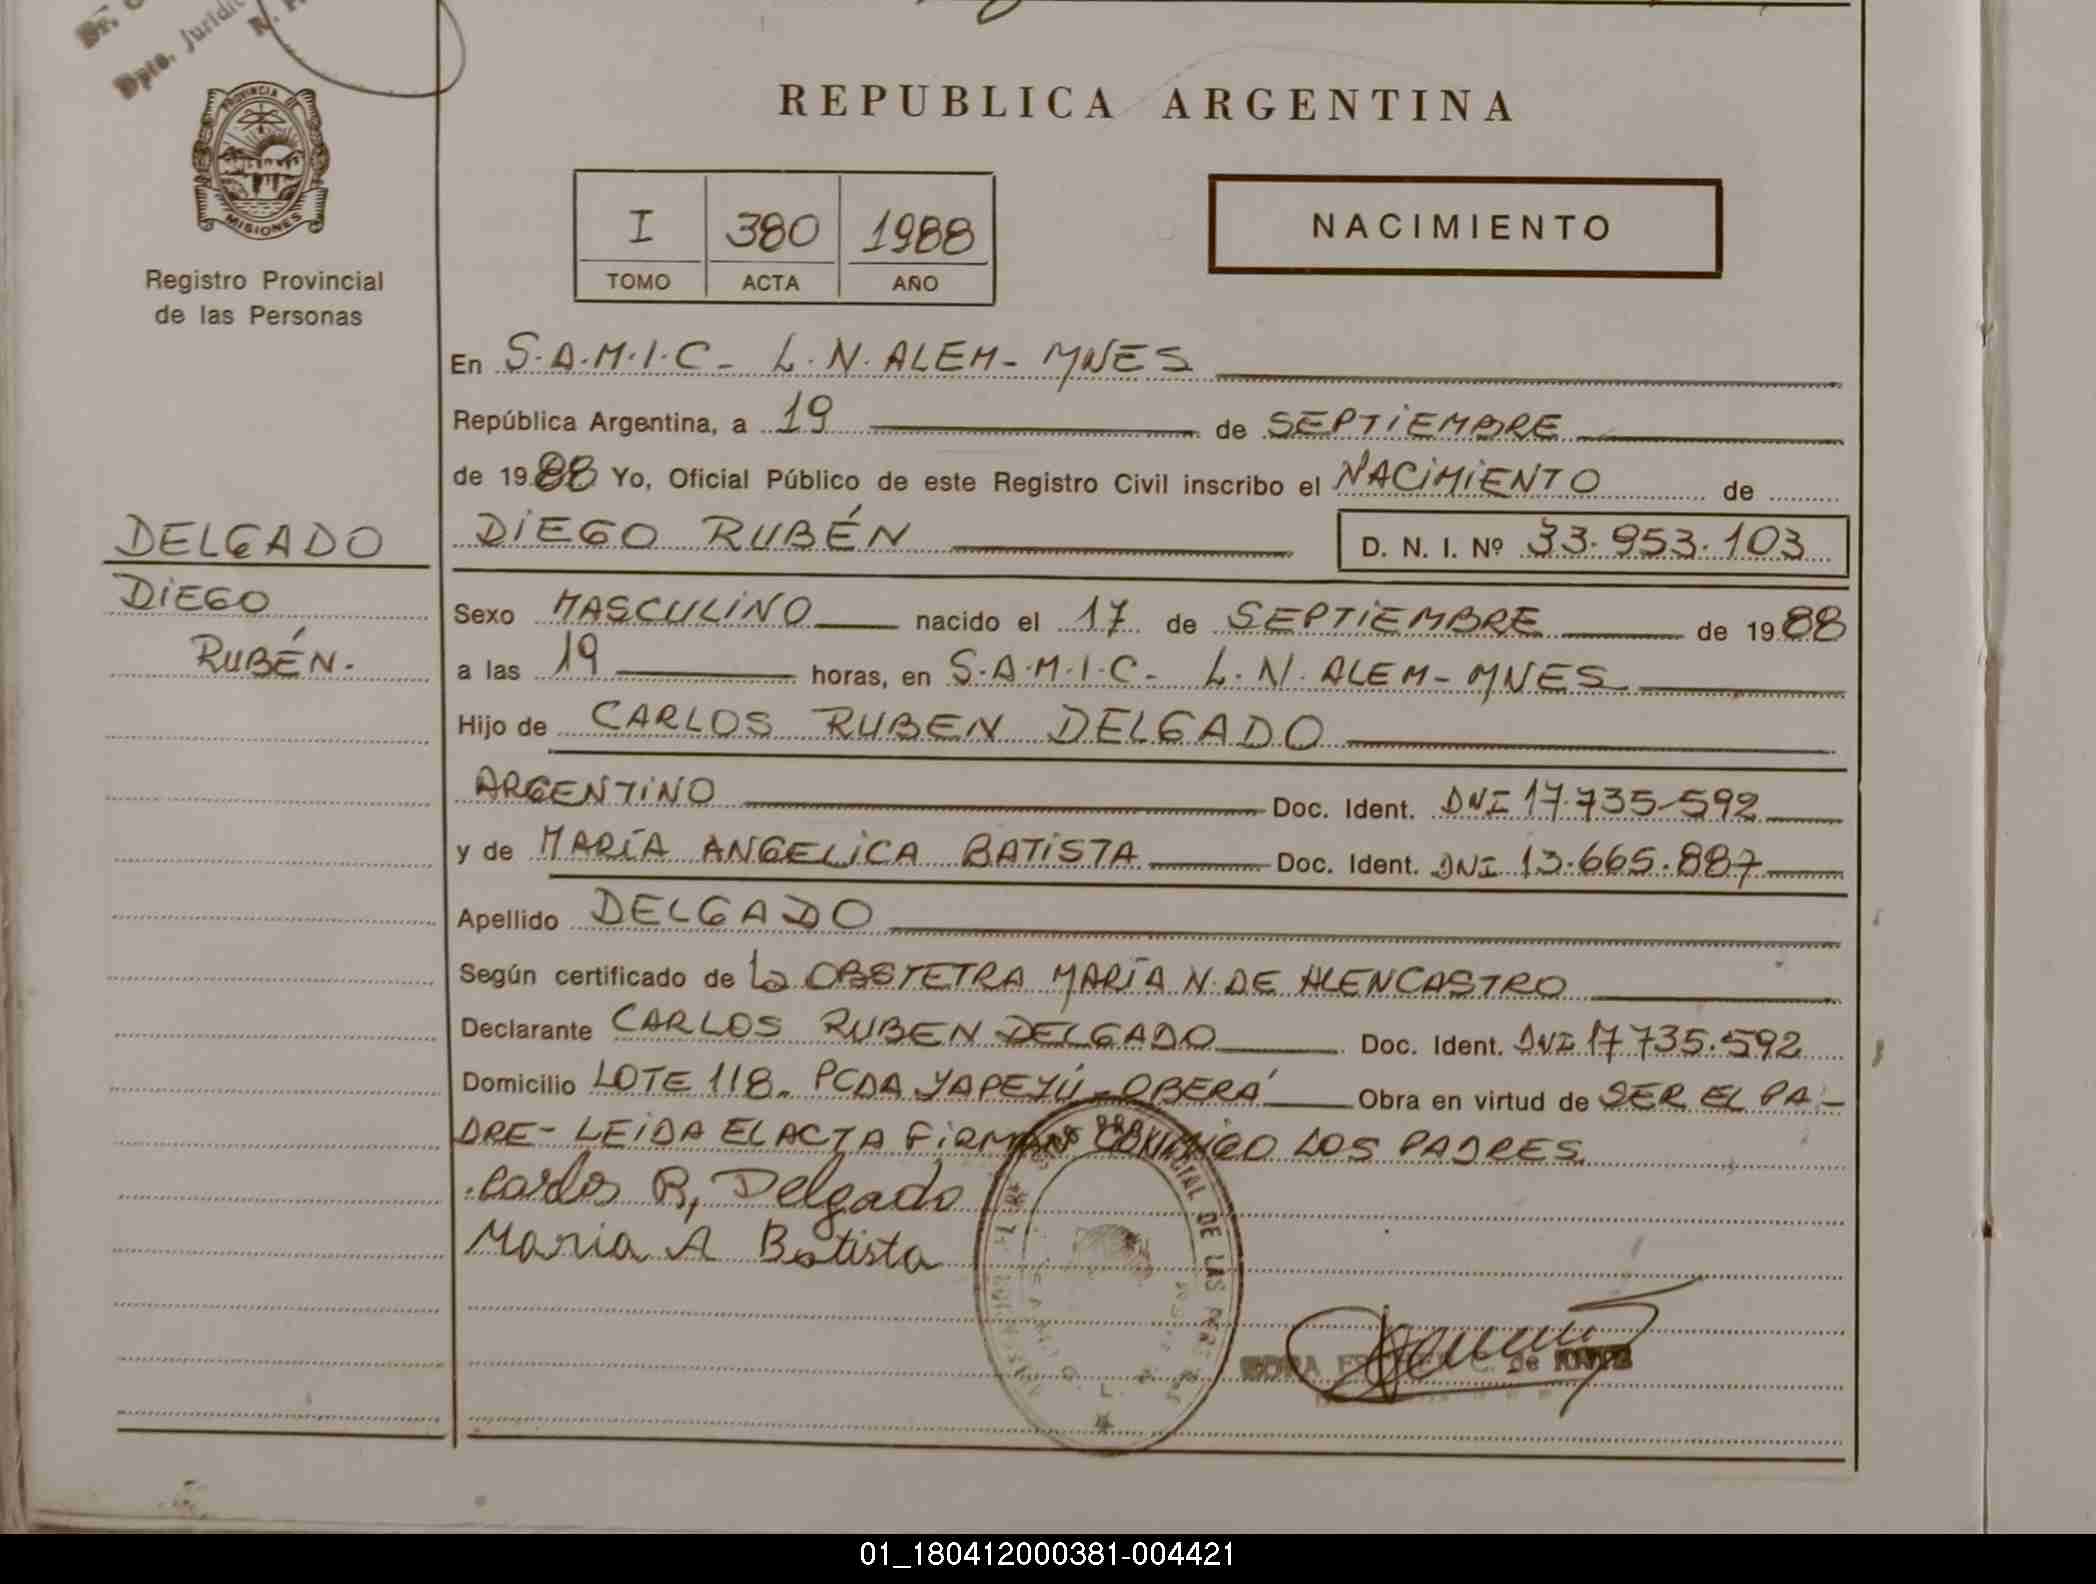 Dpto. Jurídic
PROVINCIA DE
MISIONES
Registro Provincial
de las Personas
REPUBLICA ARGENTINA
I 380 1988
TOMO ACTA AÑO
NACIMIENTO
En S.A.M.I.C- L.N.ALEM- MNES
República Argentina, a 19 de SEPTIEMBRE
de 1988 Yo, Oficial Público de este Registro Civil inscribo el NACIMIENTO de
DIEGO RUBÉN D. N. I. Nº 33.953.103
DELGADO
DIEGO
RUBÉN.
Sexo MASCULINO nacido el 17 de SEPTIEMBRE de 1988
a las 19 horas, en S.A.M.I.C- L.N. ALEM- MNES
Hijo de CARLOS RUBEN DELGADO
ARGENTINO Doc. Ident. DNI 17.735-592
y de MARÍA ANGELICA BATISTA Doc. Ident. DNI 13.665.887
Apellido DELGADO
Según certificado de La OBSTETRA MARÍA N. DE ALENCASTRO
Declarante CARLOS RUBEN DELGADO Doc. Ident. DNI 17 735.592
Domicilio LOTE 118. PCDA YAPEYÚ - OBERÁ Obra en virtud de SER EL PA-
DRE- LEIDA EL ACTA FIRMAN CONMIGO LOS PADRES
Carlos R, Delgado
Maria A Batista
DE LAS
C. de
01_180412000381-004421